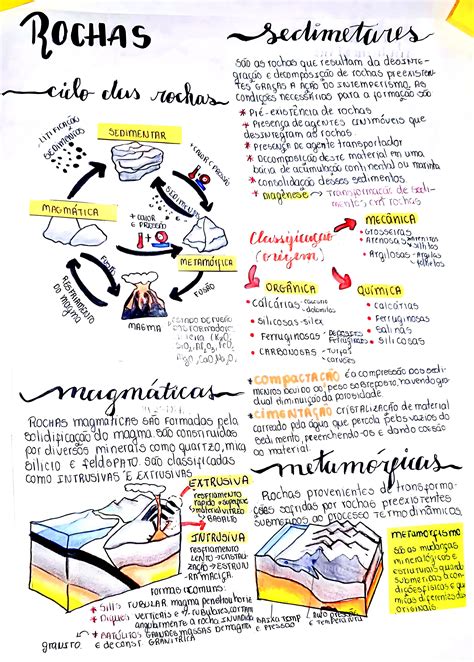 ROCHAS
ciclo das rochas
LITIFICAÇÃO
SEDIMENTOS
SEDIMENTAR
+CALOR E PRESSÃO
SEDIMENTOS
MAGMÁTICA
+ CALOR
E PRESSÃO
METAMÓRFICA
RESFRIAMENTO
DO MAGMA
FUSÃO
FUSÃO
MAGMA
sedimetáres
SÃO AS ROCHAS QUE RESULTAM DA DESINTE-
GRAÇÃO E DECOMPOSIÇÃO DE ROCHAS PREEXISTEN-
TES GRAÇAS A AÇÃO DO INTEMPERISMO. AS
CONDIÇÕES NECESSÁRIAS PARA A FORMAÇÃO SÃO
* PRÉ-EXISTÊNCIA DE ROCHAS
* PRESENÇA DE AGENTES
DESINTEGRAM AS ROCHAS.
* PRESENÇA DE AGENTE TRANSPORTADOR
* DECOMPOSIÇÃO DESTE MATERIAL EM UMA
BACIA DE ACUMULAÇÃO CONTINENTAL OU MARINHA
* CONSOLIDAÇÃO DESSES SEDIMENTOS
* DIAGÊNESE → TRANSFORMAÇÃO DE SEDI-
MENTOS EM ROCHAS
Classificação
(origem)
MECÂNICA
• GROSSEIRAS
• ARENOSAS ARENITOS
SILTITOS
• ARGILOSAS - ARGILAS
FOLHELHOS
ORGÂNICA
• CALCÁRIAS - CALCÁRIO
DOLOMITAS
• SILICOSAS - SILEX
• FERRUGINOSAS - DEPÓSITOS
FERRUGINOSOS
• CARBONOSAS - TURFAS
CARVÕES
QUÍMICA
• CALCÁRIAS
• FERRUGINOSAS
• SALINAS
• SILICOSAS
* COMPACTAÇÃO É A COMPRESSÃO DOS SEDI-
MENTOS DEVIDO AO PESO SOBREPOSTO, HAVENDO GRA-
DUAL DIMINUIÇÃO DA POROSIDADE.
* CIMENTAÇÃO CRISTALIZAÇÃO DE MATERIAL
CARREGADO PELA ÁGUA QUE PERCOLA PELOS VAZIOS DO
SEDIMENTO, PREENCHENDO-OS E DANDO COESÃO
AO MATERIAL.
magmáticas
ROCHAS MAGMÁTICAS SÃO FORMADAS PELA
SOLIDIFICAÇÃO DO MAGMA. SÃO CONSTITUÍDAS
POR DIVERSOS MINERAIS COMO QUARTZO, MICA,
SILÍCIO E FELDSPATO. SÃO CLASSIFICADAS
COMO INTRUSIVAS E EXTRUSIVAS
EXTRUSIVA
RESFRIAMENTO
RÁPIDO →
MATERIAL VÍTREO
BASALTO
INTRUSIVA
RESFRIAMENTO
LENTO →
FORMAS COMUNS:
* SILLS TUBULAR MAGMA PENETROU HORIZ
* DIQUES VERTICAIS E
A ROCHA INVADIDA
* BATÓLITOS GRANDES MASSAS DE MAGMA
GRANITO
metamórficas
ROCHAS PROVENIENTES DE TRANSFORMA-
ÇÕES SOFRIDAS POR ROCHAS PREEXISTENTES
SUBMETIDAS AO PROCESSO TERMODINÂMICOS.
METAMORFISMO
SÃO AS MUDANÇAS
MINERALÓGICAS E
ESTRUTURAIS QUANDO
SUBMETIDAS A CON-
DIÇÕES FÍSICAS E QUÍ-
MICAS DIFERENTES DAS
ORIGINAIS
BAIXA TEMP
E PRESSÃO
ALTO PRESSÃO
E TEMPERATURA